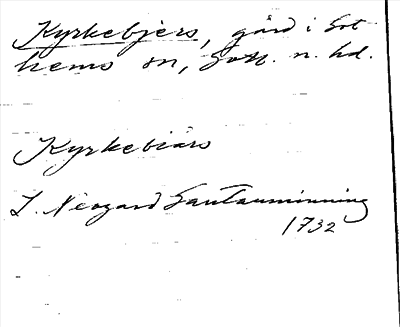 Kyrkebjers, gård i Got-
hems sn, Gotl. n. hd.
Kyrkebiärs
L. Neogard Gautauminning
1732